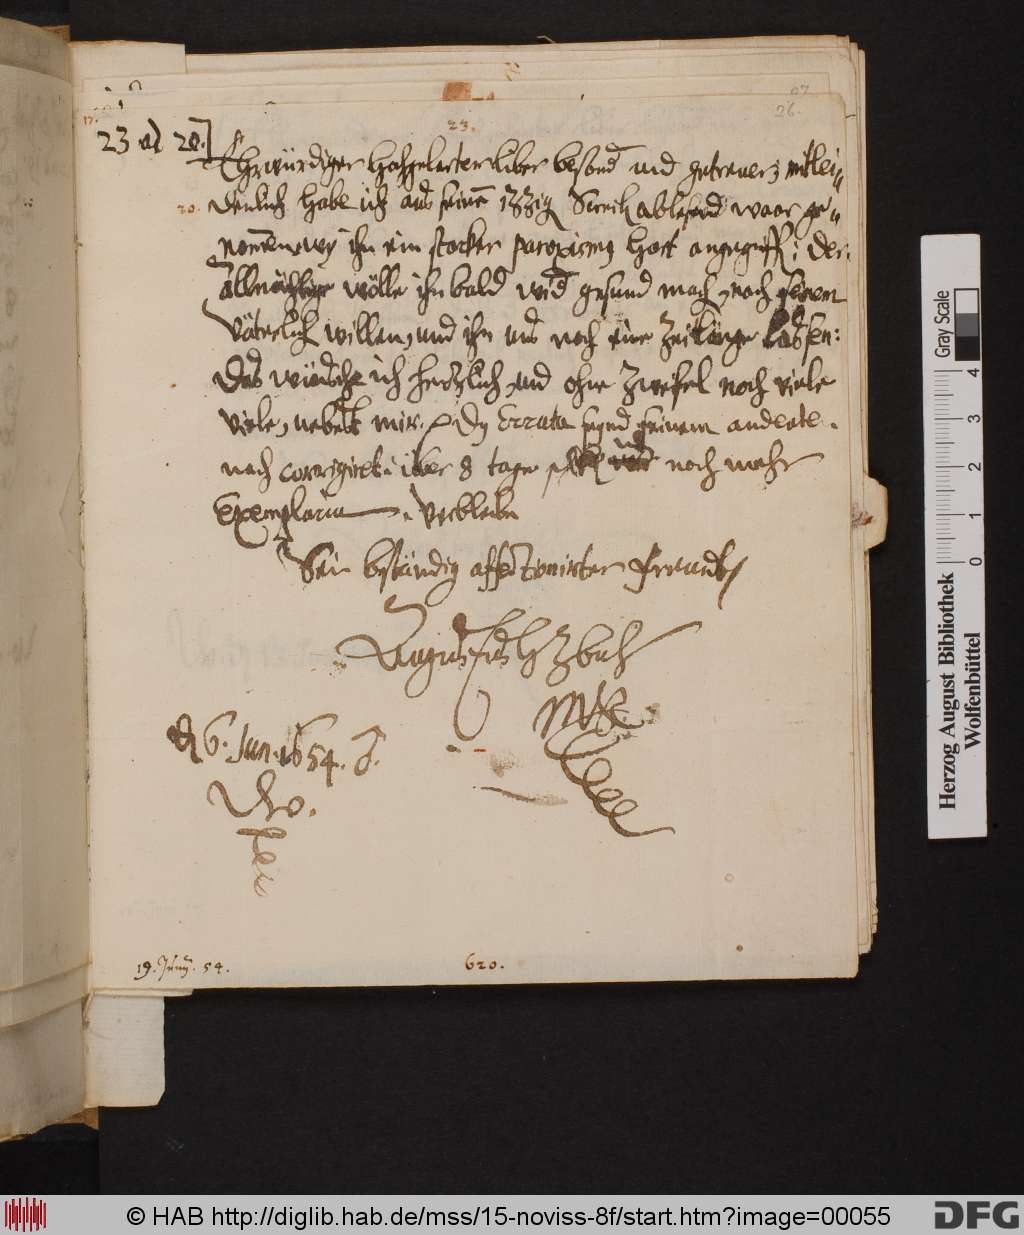 26.
17.
23.
23 ad 20.]
Ehrwürdiger hochgelarter lieber besond und getreuer, mitlei=
20. dentlich habe ich aus seinem schreiben abgehend waar ge=
nommen, wy ihn ein starker paroxismus hart angegriffen: der
Allmächtige wölle ihn bald wid gesund machen, nach seinem
Väterlich willen, und ihn uns noch eine Zeitlange lassen:
Das wündsche ich hertzlich, und ohne Zweifel noch viele
viele, nebest mir. Dy Errata seynd seinem andeuten
nach corrigirt: über 8 tage noch mehr
Exemplaria. Verbleibe
Sein bständig affectionirter Freundt
Augustus HZBuL
mp
6. Jun. 1654.
19. Junij. 54.
620.
Gray Scale
0 1 2 3 4
Herzog August Bibliothek
Wolfenbüttel
© HAB http://diglib.hab.de/mss/15-noviss-8f/start.htm?image=00055
DFG